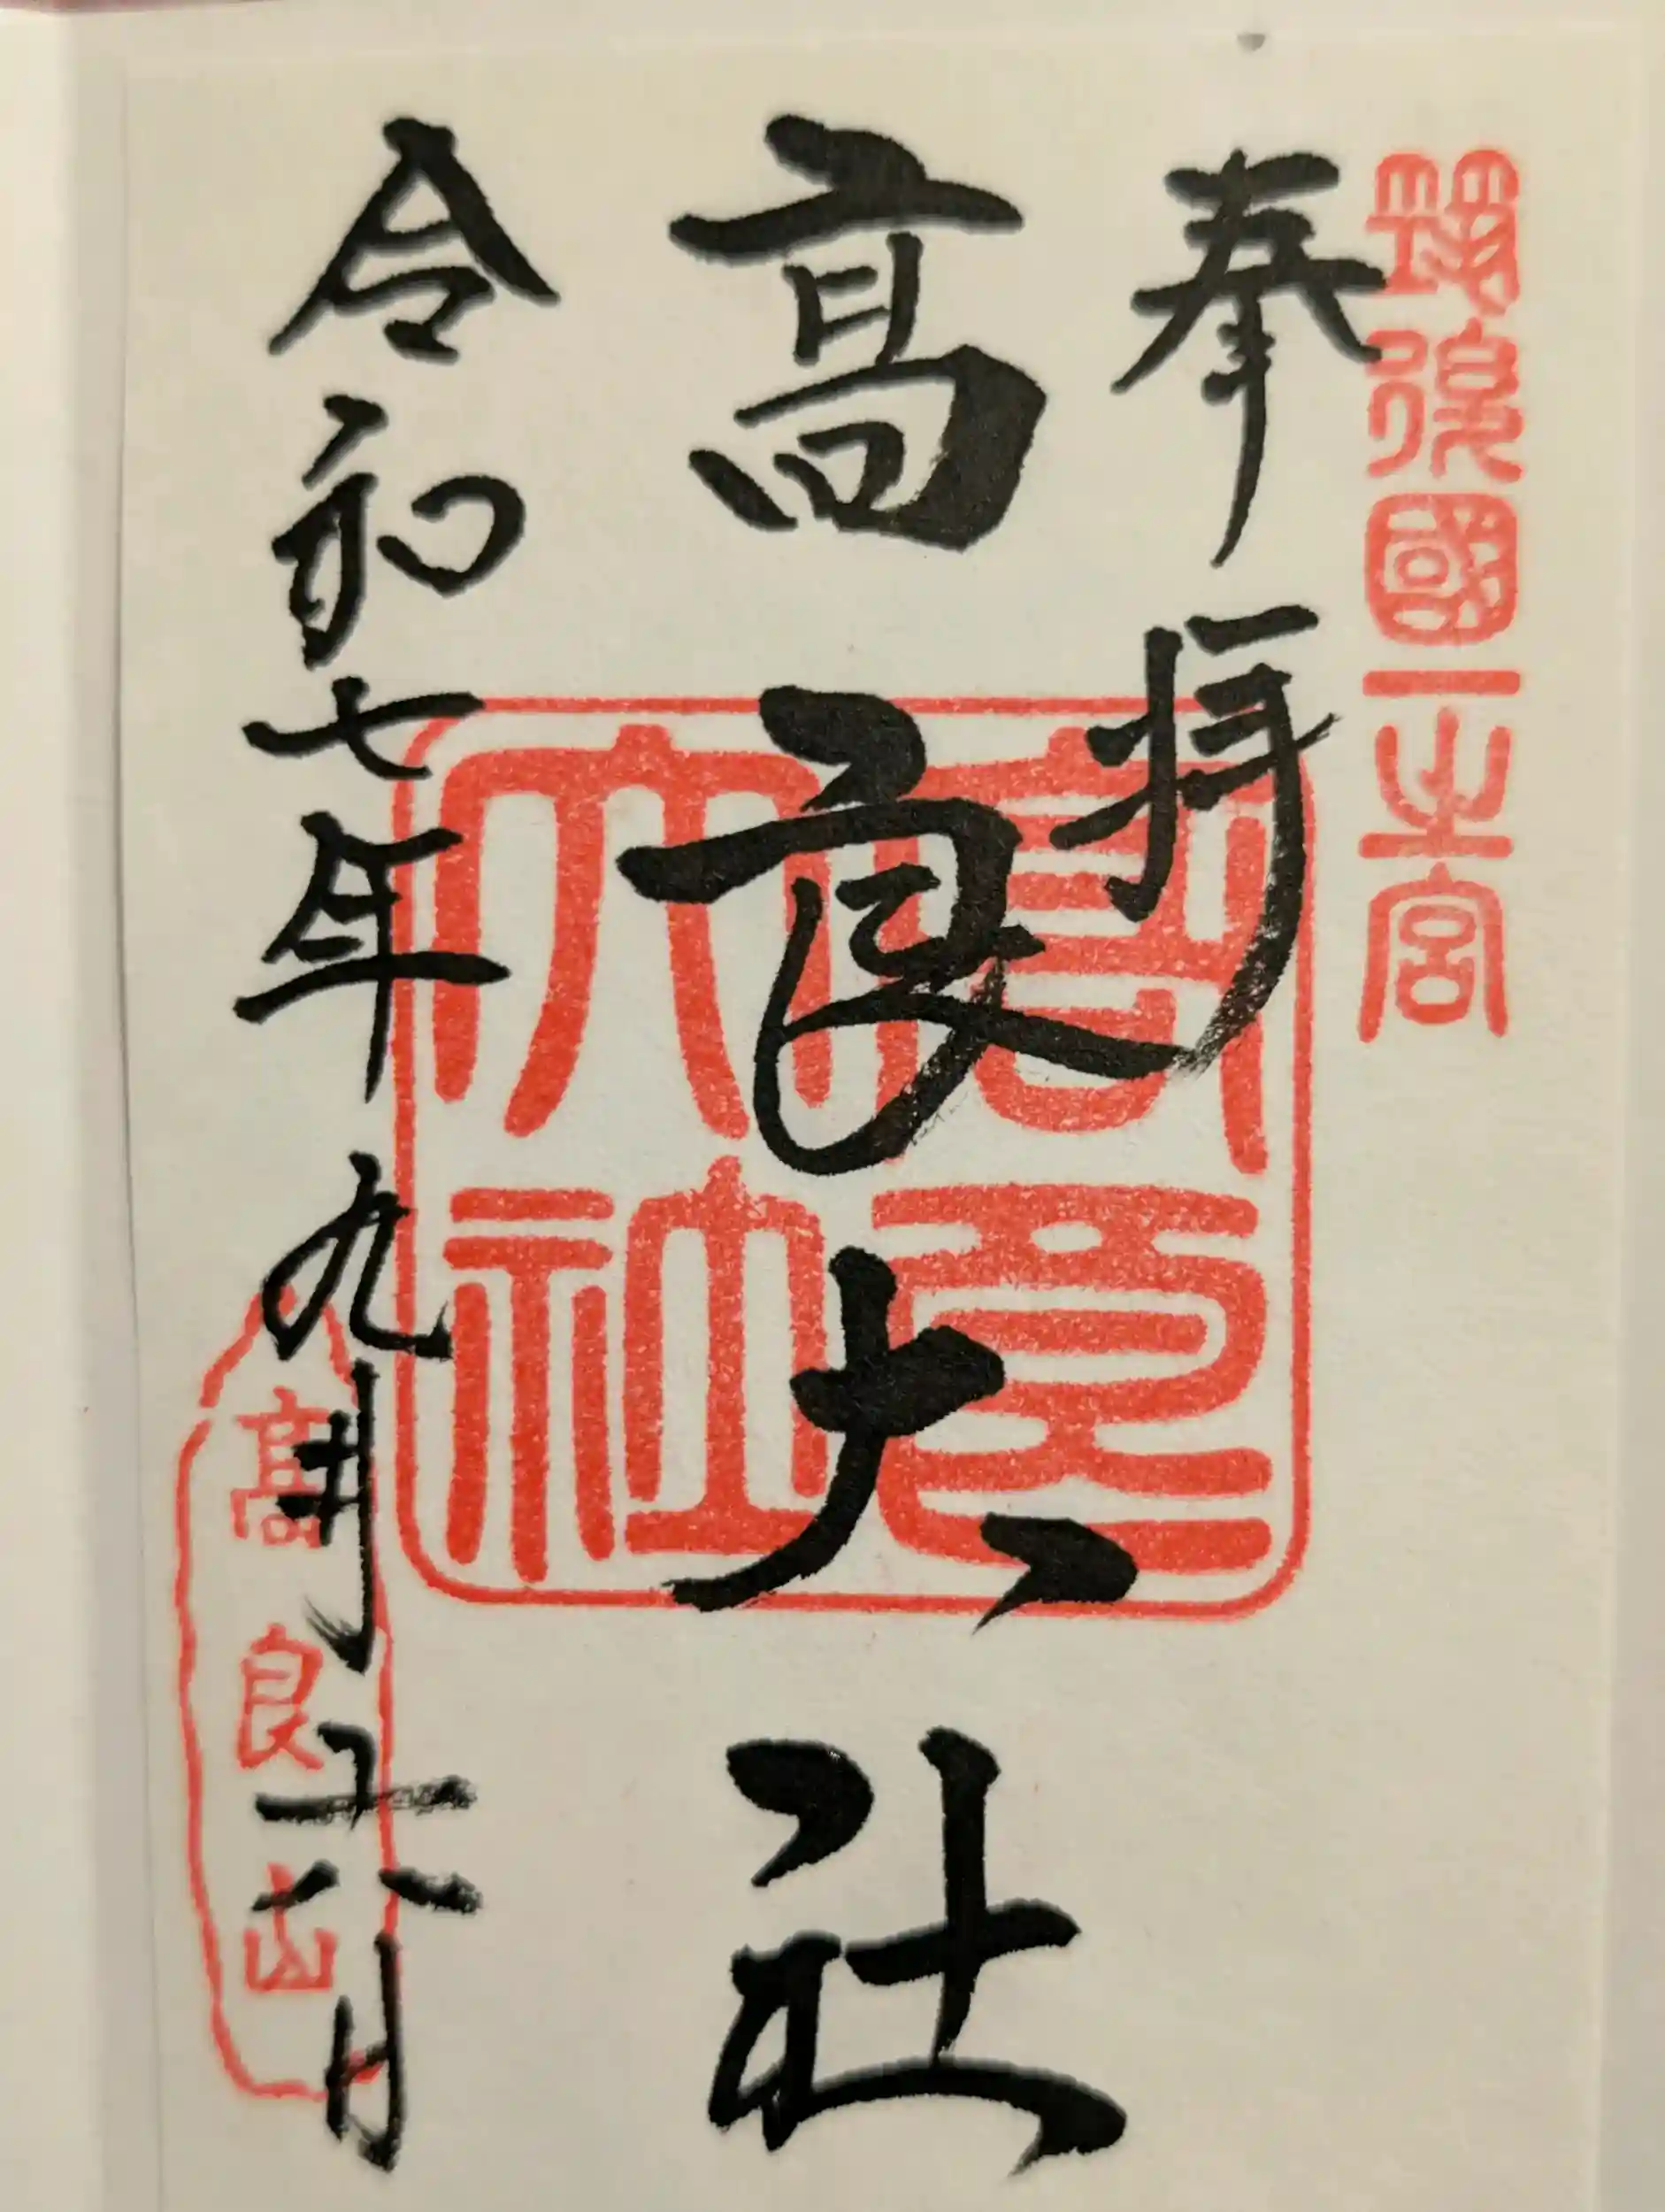 筑後國一之宮
奉拝
高良大社
高良大社
令和七年九月十八日
高良山